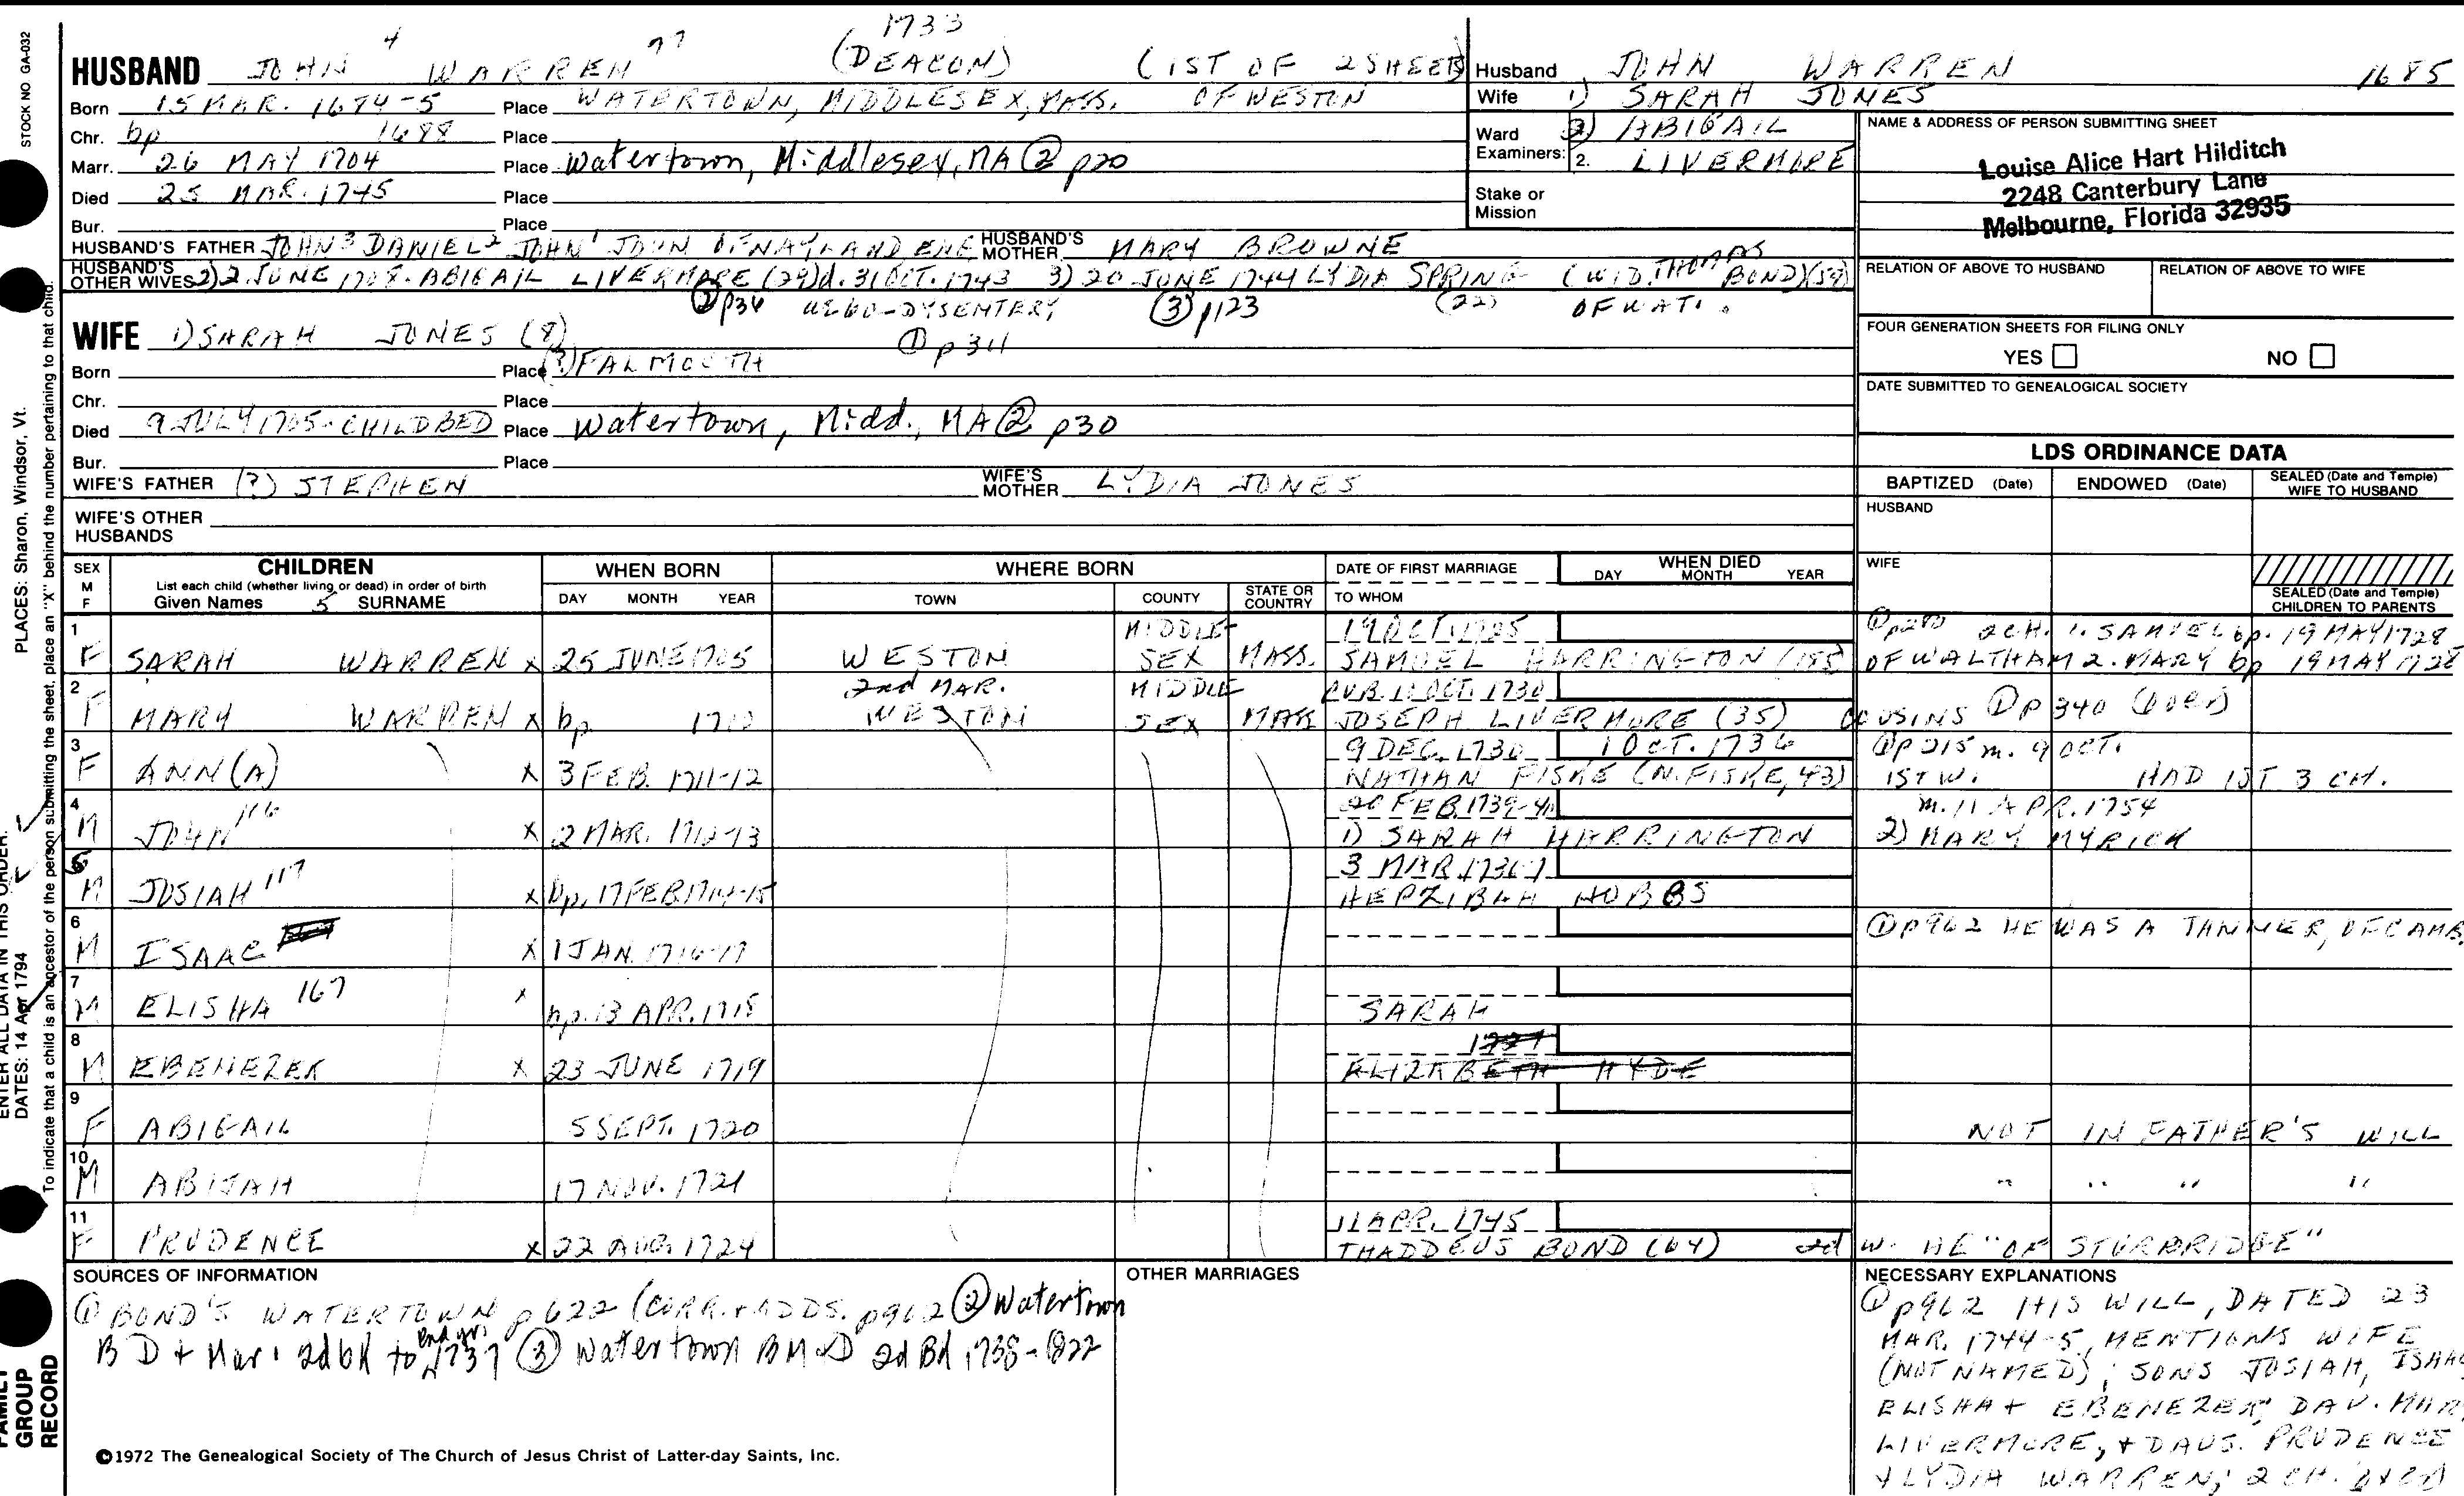 STOCK NO GA-032
PLACES: Sharon, Windsor, Vt.
ENTER ALL DATA IN THIS ORDER:
DATES: 14 Apr 1794
To indicate that a child is an ancestor of the person submitting the sheet, place an "X" behind the number pertaining to that child.
FAMILY GROUP RECORD
1733
HUSBAND JOHN 4 WARREN 77 (DEACON) (1ST OF 2 SHEETS)
Born 15 MAR. 1684-5 Place WATERTOWN, MIDDLESEX, MASS. OF WESTON
Chr. bp 1688 Place
Marr. 26 MAY 1704 Place Watertown, Middlesex, MA ② p20
Died 25 MAR. 1745 Place
Bur. Place
HUSBAND'S FATHER JOHN 3 DANIEL 2 JOHN 1 JOHN OF NAYLAND ENG HUSBAND'S MOTHER MARY BROWNE
HUSBAND'S OTHER WIVES 2) 2 JUNE 1708. ABIGAIL LIVERMORE (29) d. 31 OCT. 1743 3) 20 JUNE 1744 LYDIA SPRING (WID. THOMAS BOND) (59)
② p34 DYSENTERY ③ p123 (22) OF WAT.
WIFE 1) SARAH JONES (8) ① p 311
Born Place (?) FALMOUTH
Chr. Place
Died 9 JULY 1705 - CHILDBED Place Watertown, Midd., MA ② p30
Bur. Place
WIFE'S FATHER (?) STEPHEN WIFE'S MOTHER LYDIA JONES
WIFE'S OTHER HUSBANDS
Husband JOHN WARREN 1685
Wife 1) SARAH JONES
Ward 2) ABIGAIL
Examiners: 2. LIVERMORE
Stake or Mission
NAME & ADDRESS OF PERSON SUBMITTING SHEET
Louise Alice Hart Hilditch
2248 Canterbury Lane
Melbourne, Florida 32935
RELATION OF ABOVE TO HUSBAND RELATION OF ABOVE TO WIFE
FOUR GENERATION SHEETS FOR FILING ONLY
YES NO
DATE SUBMITTED TO GENEALOGICAL SOCIETY
LDS ORDINANCE DATA
BAPTIZED (Date) ENDOWED (Date) SEALED (Date and Temple) WIFE TO HUSBAND
HUSBAND
WIFE
SEALED (Date and Temple) CHILDREN TO PARENTS
SEX M F CHILDREN WHEN BORN WHERE BORN DATE OF FIRST MARRIAGE WHEN DIED
List each child (whether living or dead) in order of birth
Given Names 5 SURNAME DAY MONTH YEAR TOWN COUNTY STATE OR COUNTRY TO WHOM DAY MONTH YEAR
1 MIDDLE- 19 OCT. 1725 ① p280 2 CH. 1. SAMUEL bp. 19 MAY 1728
F SARAH WARREN x 25 JUNE 1705 WESTON SEX MASS. SAMUEL HARRINGTON (185) OF WALTHAM 2. MARY bp 19 MAY 1728
2 2nd MAR. MIDDLE PUB. 10 OCT. 1730
F MARY WARREN x bp. 1710 WESTON SEX MASS JOSEPH LIVERMORE (35) COUSINS ① P 340
3 9 DEC. 1730 1 OCT. 1736 ① P 215 m. 9 OCT.
F ANN(A) x 3 FEB. 1711-12 NATHAN FISKE (N. FISKE, 43) 1ST W. HAD 1ST 3 CH.
4 FEB. 1739-40 m. 11 APR. 1754
M JOHN 116 x 2 MAR. 1712-13 1) SARAH HARRINGTON 2) MARY MYRICK
5 3 MAR. 1736-7
M JOSIAH 117 x bp. 17 FEB 1714-15 HEPZIBAH HOBBS
6 ① P962 HE WAS A TANNER, OF CAMB.
M ISAAC x 1 JAN. 1716-17
7
M ELISHA 167 x bp. 13 APR. 1718 SARAH
8
M EBENEZER x 23 JUNE 1719 ELIZABETH HYDE
9
F ABIGAIL 5 SEPT. 1720 NOT IN FATHER'S WILL
10
M ABIJAH 17 NOV. 1721 " " " "
11 11 APR. 1745
F PRUDENCE x 22 AUG. 1724 THADDEUS BOND (64) 2d W. HE "OF STURBRIDGE"
SOURCES OF INFORMATION
① BOND'S WATERTOWN p 622 (CORR. + ADDS. p962 ② Watertown
B D + Mar. 2d bk to End yr. 1737 ③ Watertown B M + D 3d Bk 1738-1822
OTHER MARRIAGES
NECESSARY EXPLANATIONS
① p962 HIS WILL, DATED 23
MAR. 1744-5, MENTIONS WIFE
(NOT NAMED); SONS JOSIAH, ISAAC
ELISHA + EBENEZER, DAU. MARY
LIVERMORE, + DAUS. PRUDENCE
+ LYDIA WARREN; 2 CH.
©1972 The Genealogical Society of The Church of Jesus Christ of Latter-day Saints, Inc.